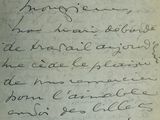 Monsieur,
mon mari débordé
de travail aujourd'
me cède le plaisir
de vous remercier
pour l'aimable
envoi des billets